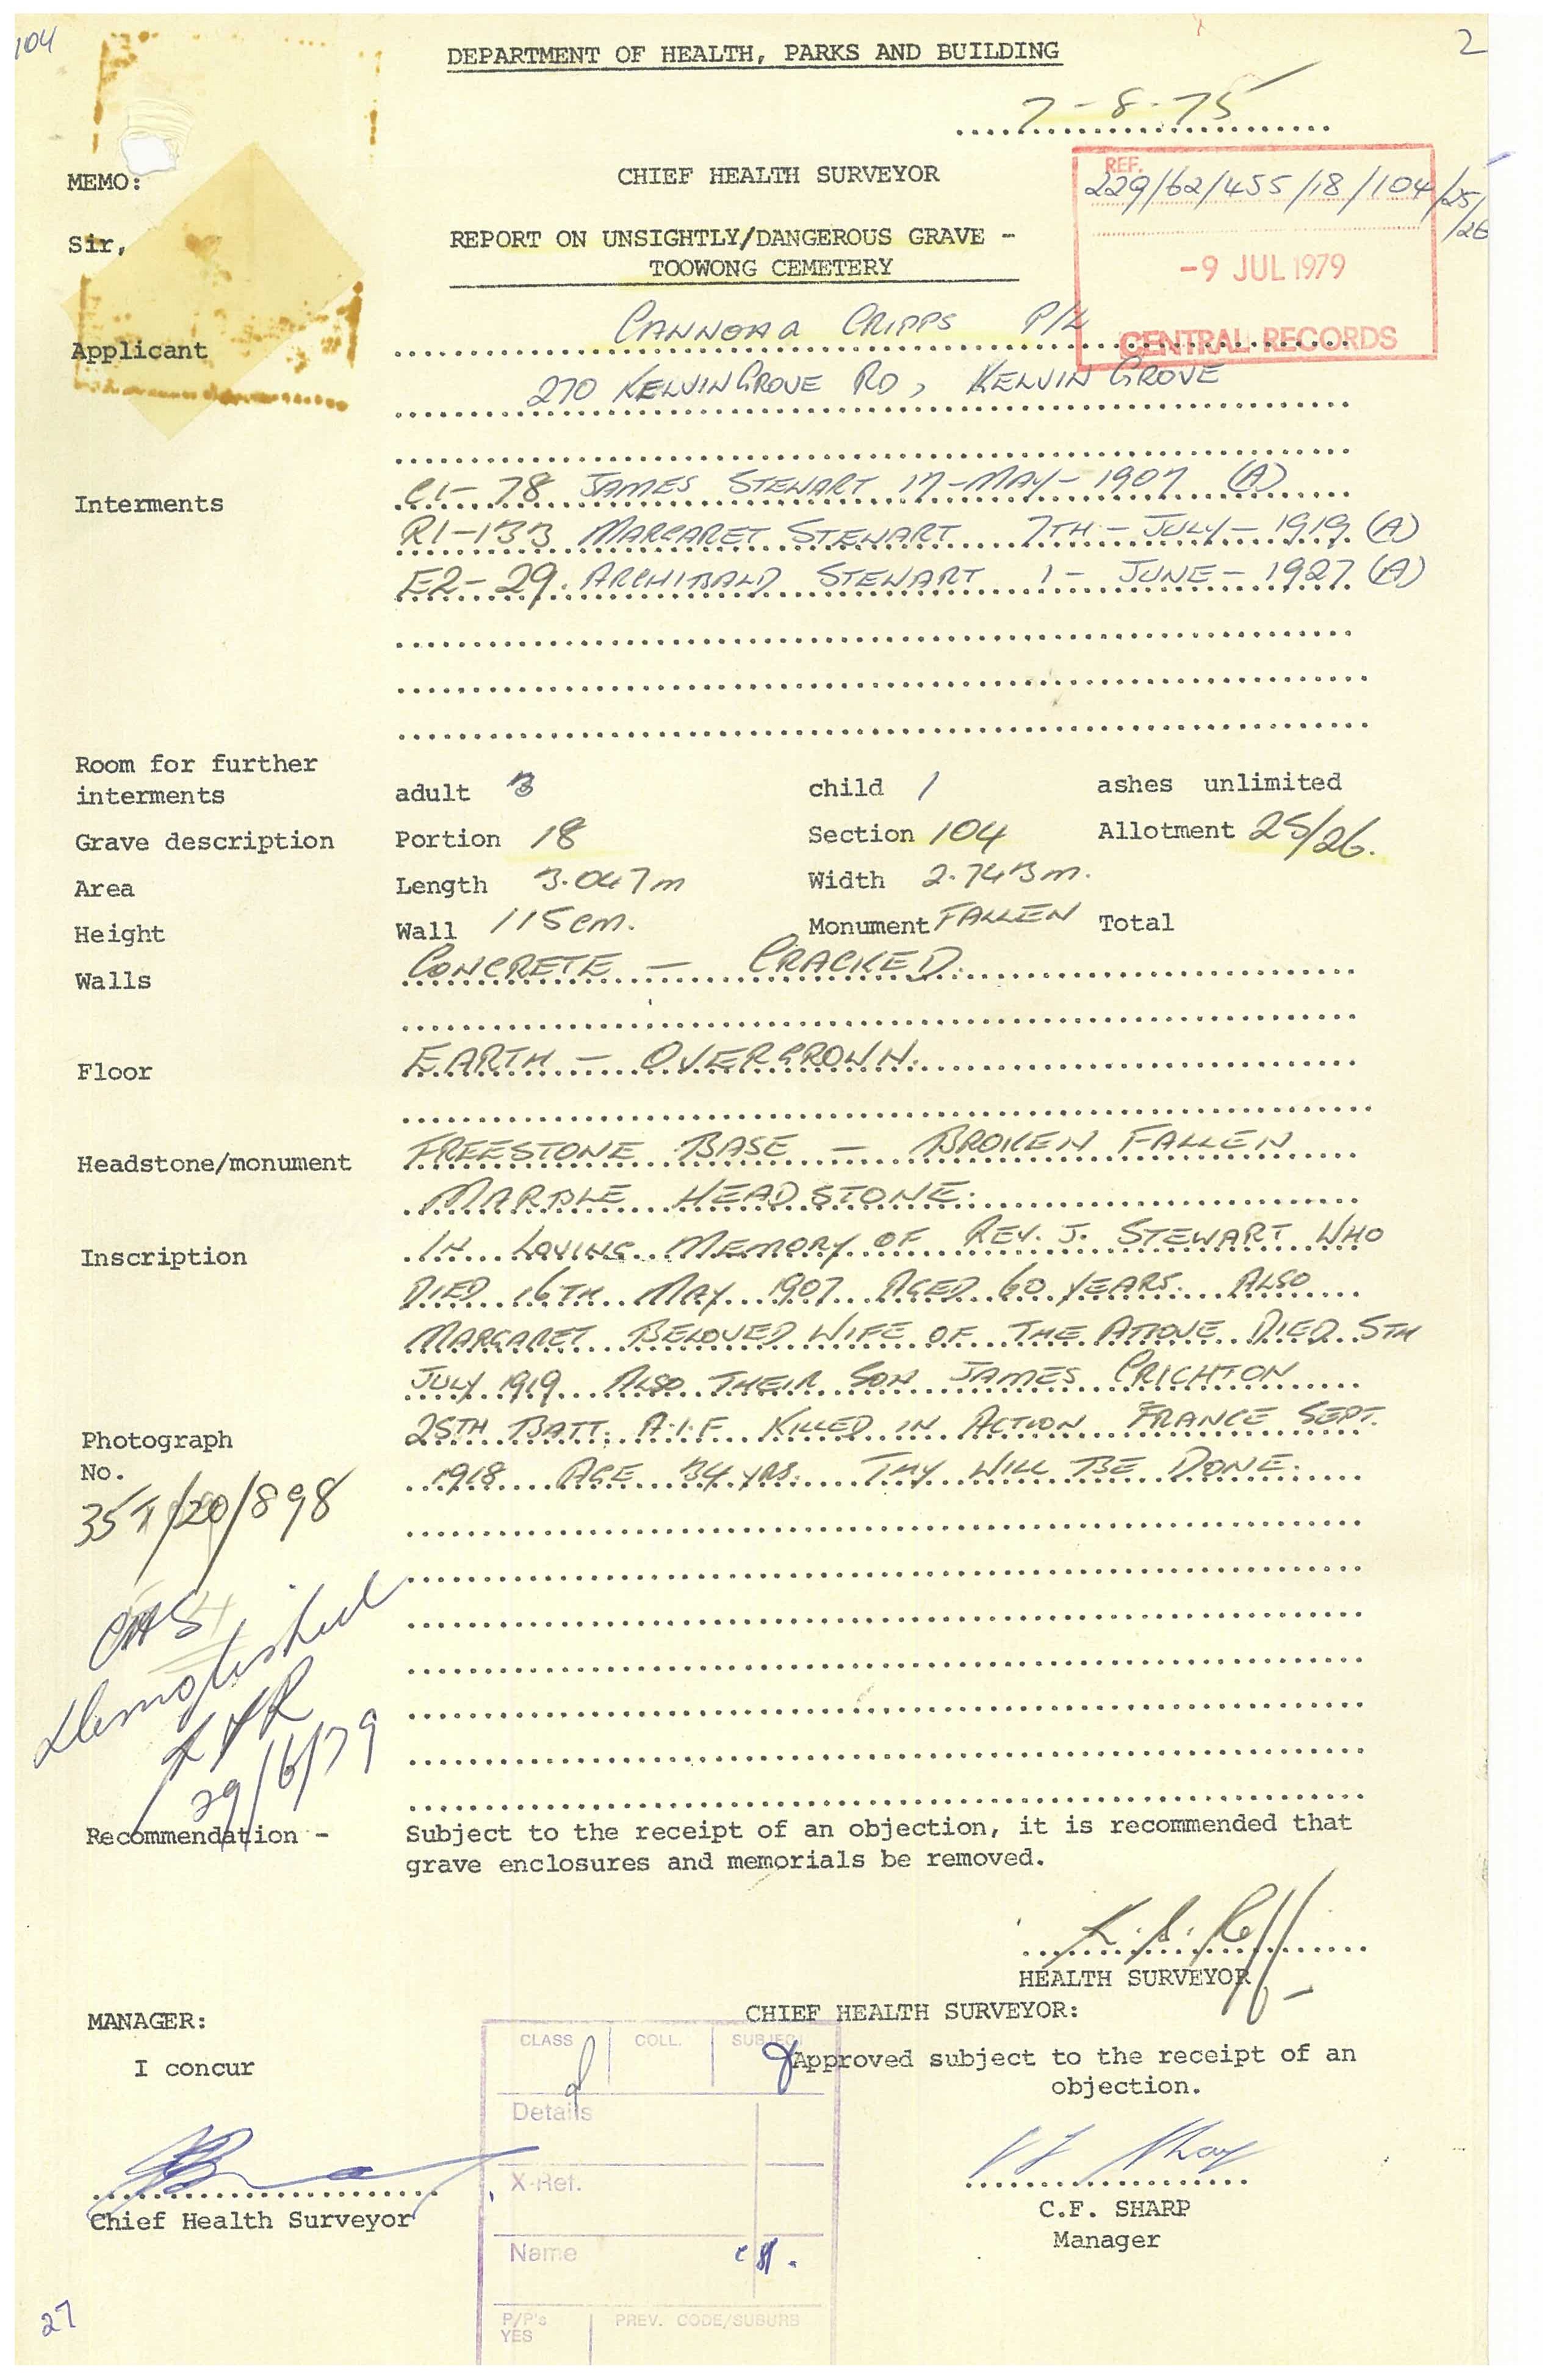 104
2
DEPARTMENT OF HEALTH, PARKS AND BUILDING
7-8-75
MEMO:
CHIEF HEALTH SURVEYOR
REF.
229/62/455/18/104/25/
/26
Sir,
REPORT ON UNSIGHTLY/DANGEROUS GRAVE -
TOOWONG CEMETERY
-9 JUL 1979
CENTRAL RECORDS
Applicant CANNON & CRIPPS P/L
270 KELVIN GROVE RD, KELVIN GROVE
Interments C1-78 JAMES STEWART 17-MAY-1907 (A)
R1-133 MARGARET STEWART 7TH-JULY-1919 (A)
E2-29. ARCHIBALD STEWART 1-JUNE-1927 (A)
Room for further
interments adult 3 child 1 ashes unlimited
Grave description Portion 18 Section 104 Allotment 25/26.
Area Length 3.047m Width 2.743m.
Height Wall 115cm. Monument FALLEN Total
Walls CONCRETE - CRACKED.
Floor EARTH - OVERGROWN.
Headstone/monument FREESTONE BASE - BROKEN FALLEN
MARBLE HEADSTONE.
Inscription IN LOVING MEMORY OF REV. J. STEWART WHO
DIED 16TH MAY 1907 AGED 60 YEARS. ALSO
MARGARET BELOVED WIFE OF THE ABOVE DIED 5TH
JULY 1919 ALSO THEIR SON JAMES CRICHTON
25TH BATT. A.I.F. KILLED IN ACTION FRANCE SEPT.
1918 AGE 34 YRS. THY WILL BE DONE.
Photograph
No.
/20/898
CHS
demolished
29/6/79
Recommendation - Subject to the receipt of an objection, it is recommended that
grave enclosures and memorials be removed.
HEALTH SURVEYOR
MANAGER:
CHIEF HEALTH SURVEYOR:
I concur
Approved subject to the receipt of an
objection.
CLASS COLL. SUBJECT
Details
X-Ref.
Name
P/P's
YES
PREV. CODE/SUBURB
Chief Health Surveyor
C.F. SHARP
Manager
27